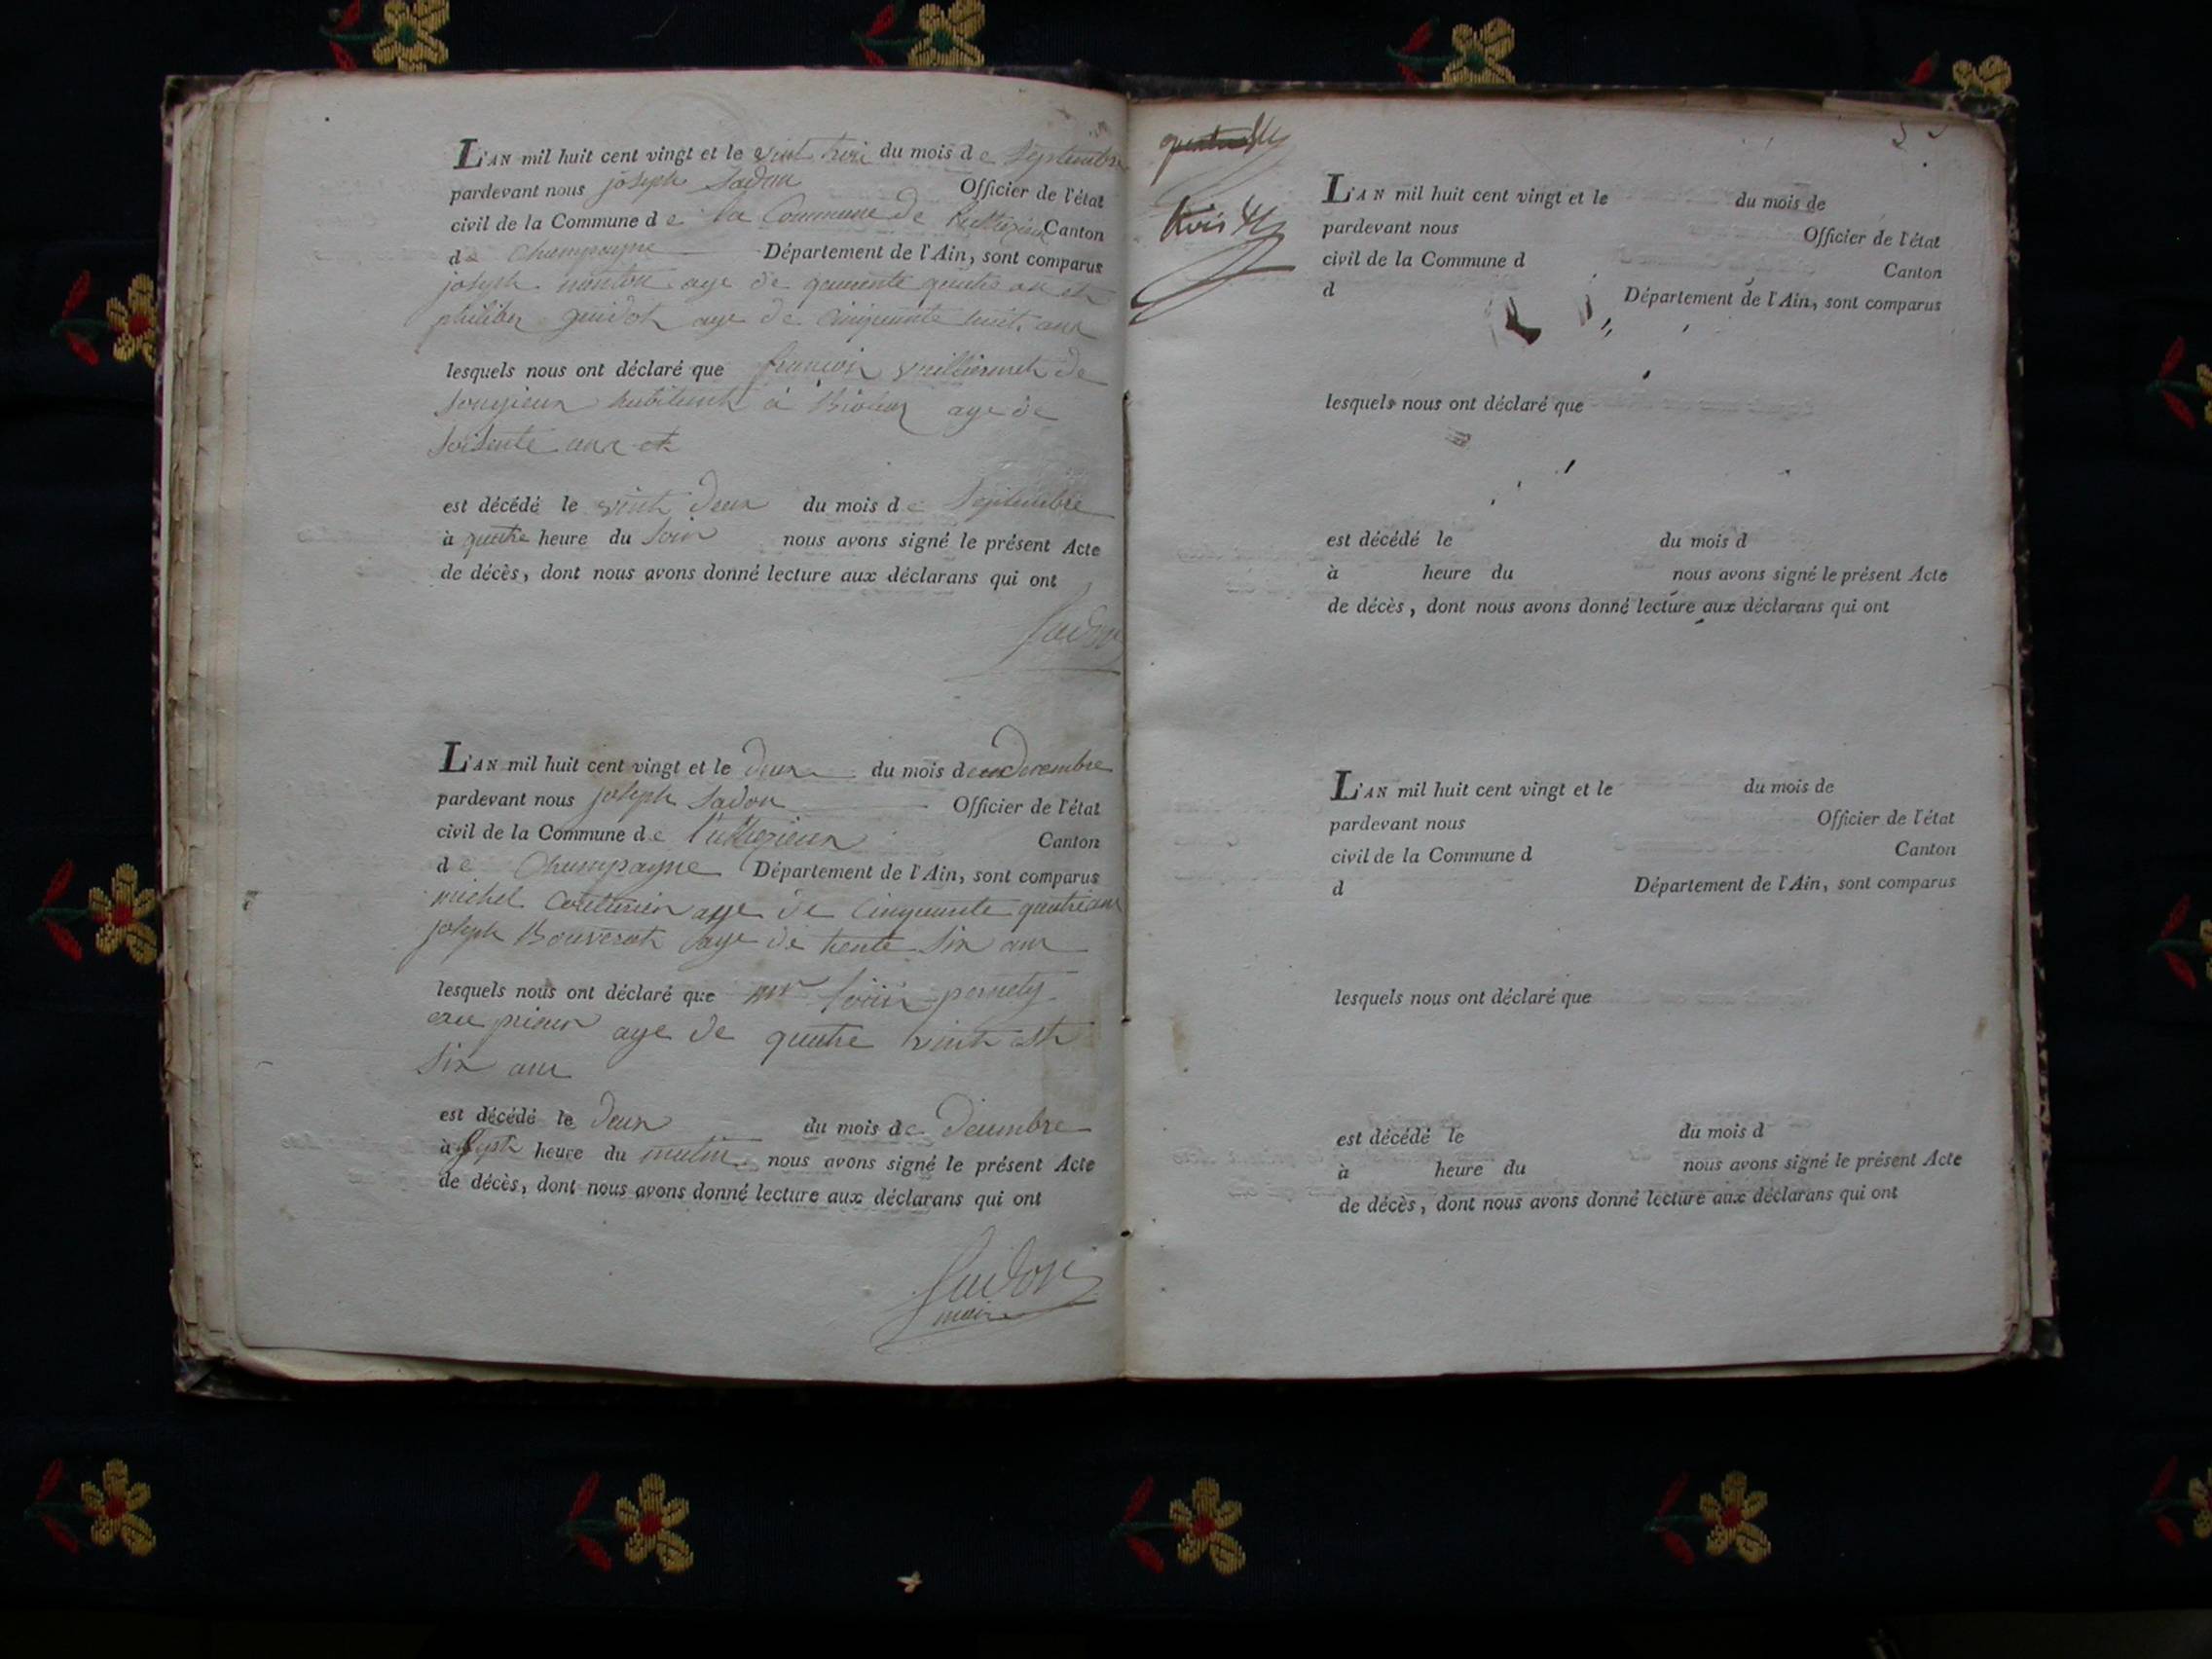 L'AN mil huit cent vingt et le vint troi du mois de Septembre
pardevant nous joseph Sadon Officier de l'état
civil de la Commune de la Commune de Canton
de Champagne Département de l'Ain, sont comparus
joseph age de quarente quatre an et
philiber guidot age de cinquente huit ans
lesquels nous ont déclaré que francois vuilliermet de
Songieux habitant à age de
soisente ans et
est décédé le vint deux du mois de Septembre
à quatre heure du soir nous avons signé le présent Acte
de décès, dont nous avons donné lecture aux déclarans qui ont
Sadon
L'AN mil huit cent vingt et le deux du mois de decembre
pardevant nous joseph Sadon Officier de l'état
civil de la Commune de Luthezieux Canton
de Champagne Département de l'Ain, sont comparus
michel age de cinquente quatre ans
joseph Bouverat age de trente six ans
lesquels nous ont déclaré que mr pernety
age de quatre vint et
six ans
est décédé le deux du mois de decembre
à sept heure du matin nous avons signé le présent Acte
de décès, dont nous avons donné lecture aux déclarans qui ont
Sadon
maire
trois
L'AN mil huit cent vingt et le du mois de
pardevant nous Officier de l'état
civil de la Commune d Canton
d Département de l'Ain, sont comparus
lesquels nous ont déclaré que
est décédé le du mois d
à heure du nous avons signé le présent Acte
de décès, dont nous avons donné lecture aux déclarans qui ont
L'AN mil huit cent vingt et le du mois de
pardevant nous Officier de l'état
civil de la Commune d Canton
d Département de l'Ain, sont comparus
lesquels nous ont déclaré que
est décédé le du mois d
à heure du nous avons signé le présent Acte
de décès, dont nous avons donné lecture aux déclarans qui ont